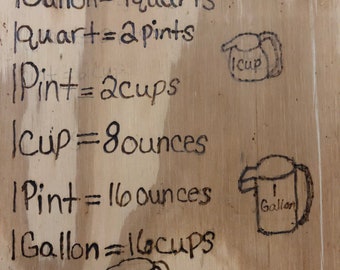 1Gallon=4quarts
1quart=2pints
1cup
1Pint=2cups
1cup=8ounces
1Pint=16ounces
1
Gallon
1Gallon=16cups